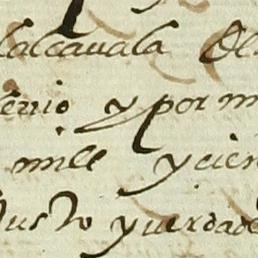 lalcauala De
y por m
mill y cien
Justo y uerdade